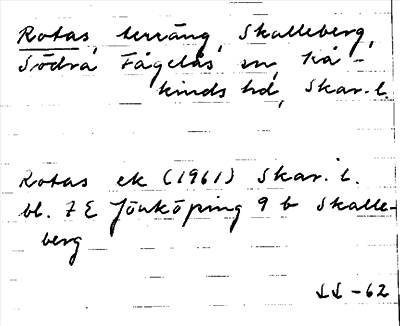 Rotas, terräng, Skalleberg,
Södra Fågelås sn, Kå-
kinds hd, Skar. l.
Rotas ek (1961) Skar. l.
bl. 7 E Jönköping 9 b Skalle-
berg
-62